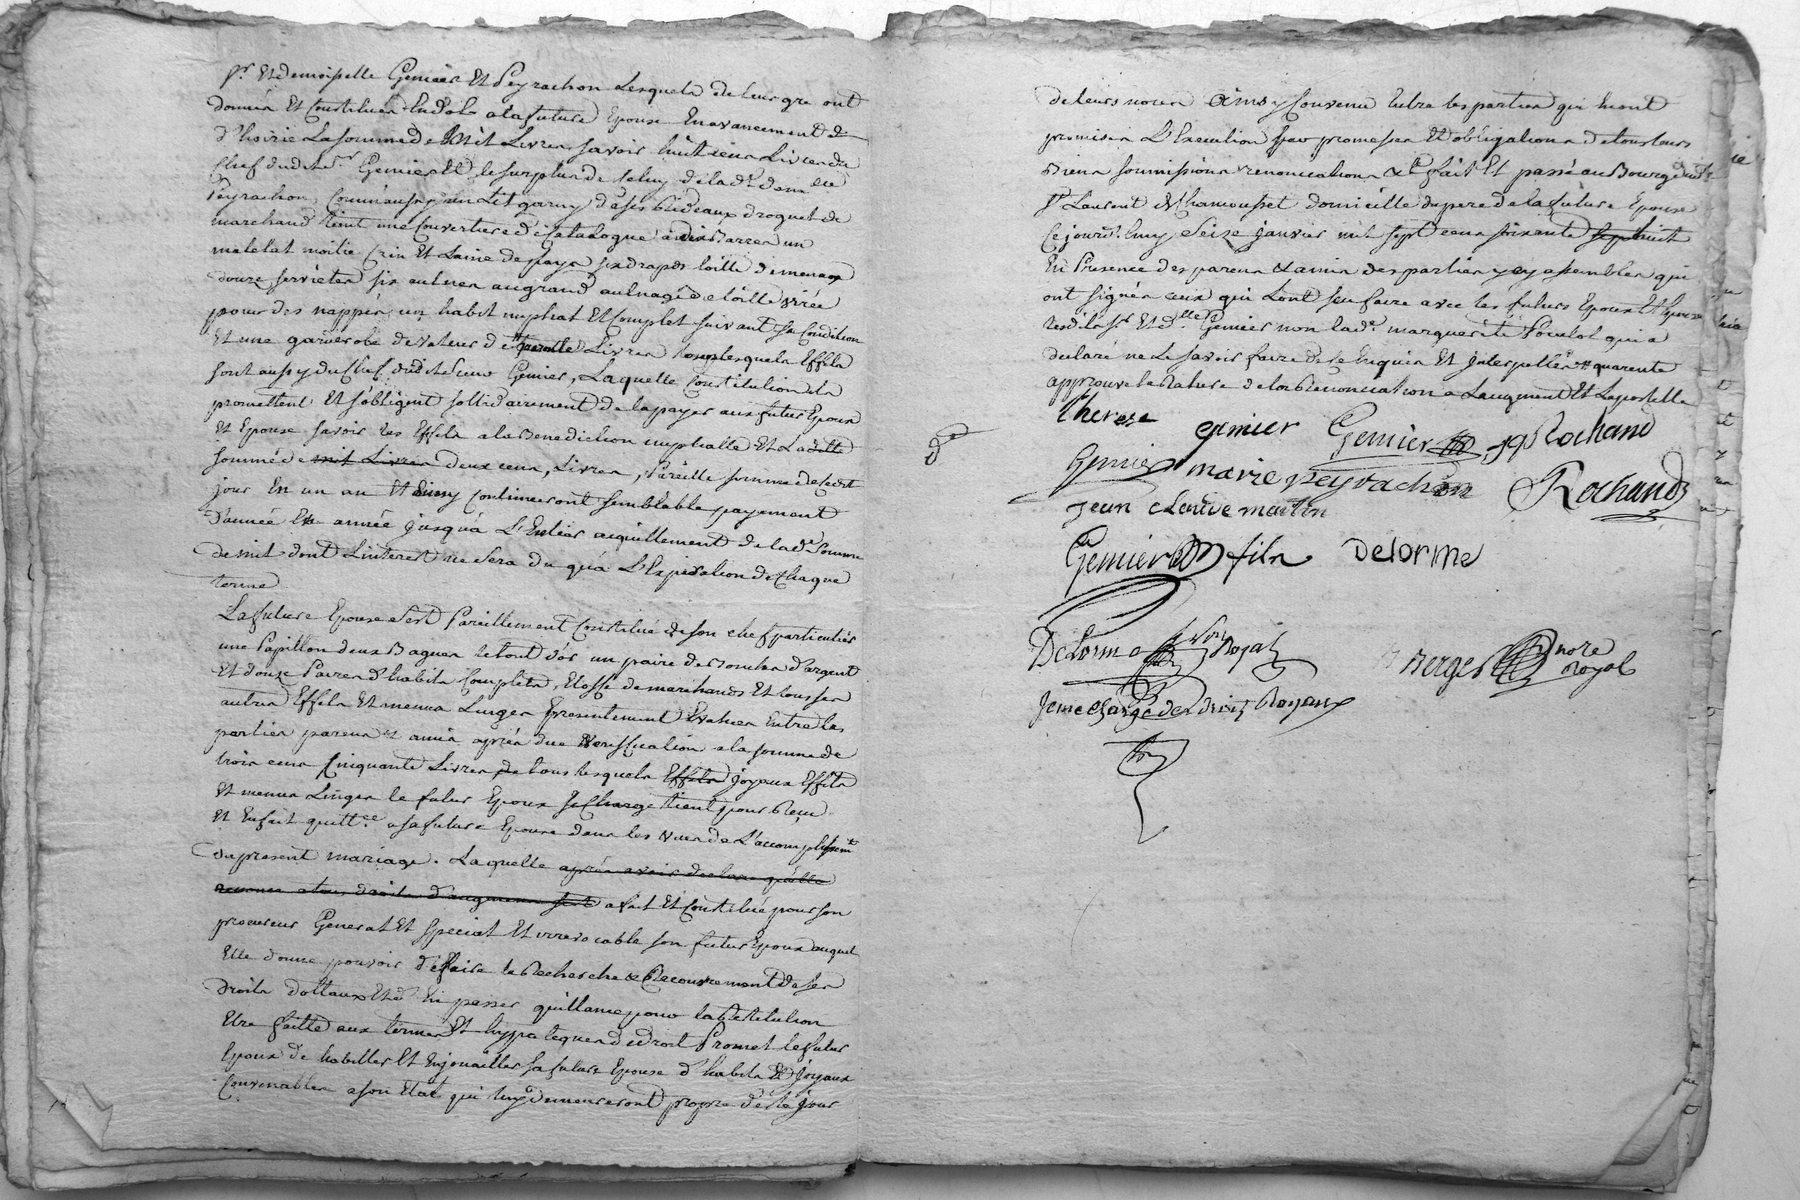 Sr Et demoiselle Genier Et Peyrachon Lesquels de leur gre ont
donnés Et Constitués En dot a la future Epouse En avancement
d'hoirie La somme de Mil Livres savoir huit cens Livres du
Chef dudit Sr Genier Et le surplus de celuy de lad. demlle
Peyrachon, Comm'aussy un Lit garny d'a ses Rideaux droguet de
marchand teint une Couverture de Catalogne à dix Barres un
matelat moitié Crin Et Laine de pays six draps toille de menage
douze serviettes six aulnes au grand aulnage de toille
pour des nappes, un habit nuptial Et Complet suivant sa Condition
Et une garderobe de valeur de quarente Livres tous lesquels Effets
sont aussy du Chef dudit sieur Genier, Laquelle Constitution ils
promettent Et s'obligent sollidairement de la payer aux futur Epoux
Et Epouse savoir les Effets a la Benediction nuptialle Et Ladite
somme de mil Livres deux cens Livres, Pareille somme de ce dit
jour En un an Et ainsy Continueront semblable payement
d'année En année jusqu'à L'Entier acquittement de lad. somme
de mil dont L'interest ne sera du qu'à L'Expiration de Chaque
terme
La future Epouse s'est Pareillement Constitué de son chef particulier
une Papillon deux Bagues le tout d'or un paire de Boucles d'argent
Et douze Paires d'habits Complets, Etoffe de marchands Et tous ses
autres Effets Et menus Linges Presentement Evalués Entre les
parties parens & amis après due verification a la somme de
trois cens Cinquante Livres de tous lesquels Effets joyaux Effets
Et menus Linges le futur Epoux se Charge tient pour Reçu
Et En fait quittce a sa future Epouse dans les vues de L'accomplissemt
du present mariage. Laquelle après avoir declaré qu'elle
renonce a tous droits d'augment a fait Et Constitué pour son
procureur General Et special Et irrevocable son futur Epoux auquel
Elle donne pouvoir de faire la Recherche & Recouvrement de ses
droits dottaux Et d'En passer quittance pour la Restitution
Etre faitte aux termes Et hypoteques de droit Promet le futur
Epoux de habiller Et Enjouailler sa future Epouse d'habits & Joyaux
Convenables a son Etat qui luy demeureront propre dès le jour
de leurs noces Ainsy Convenu Entre les parties qui En ont
promis L'Execution par promesses Et obligations de tous leurs
Biens soumissions renonciations &c fait Et passé au Bourg de
St Laurent de Chamousset domicille du pere de la future Epouse
Ce jourd'huy seise janvier mil sept cens soixante
En Presence des parens & amis des parties y assemblés qui
ont signés ceux qui L'ont seu faire avec les futurs Epoux Et Epouse
lesdits Sr Et dlle Genier non lade marguerite qui a
declaré ne Le savoir faire de ce Enquis Et Interpellés quarente
approuve la Rature de la Renonciation a L'augment Et L'apostille
therese genier Genier jp Rochand
Genier marie peyrachon Rochand
jean claude martin
Genier fils Delorme
Delorme Nore Royal
Berger nore royal